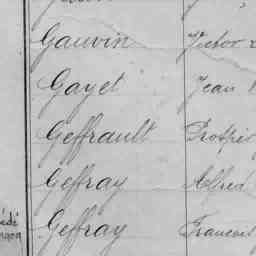 Gauvin Victor
Gayet Jean
Geffrault Prosper
Geffray Alfred
Geffray François